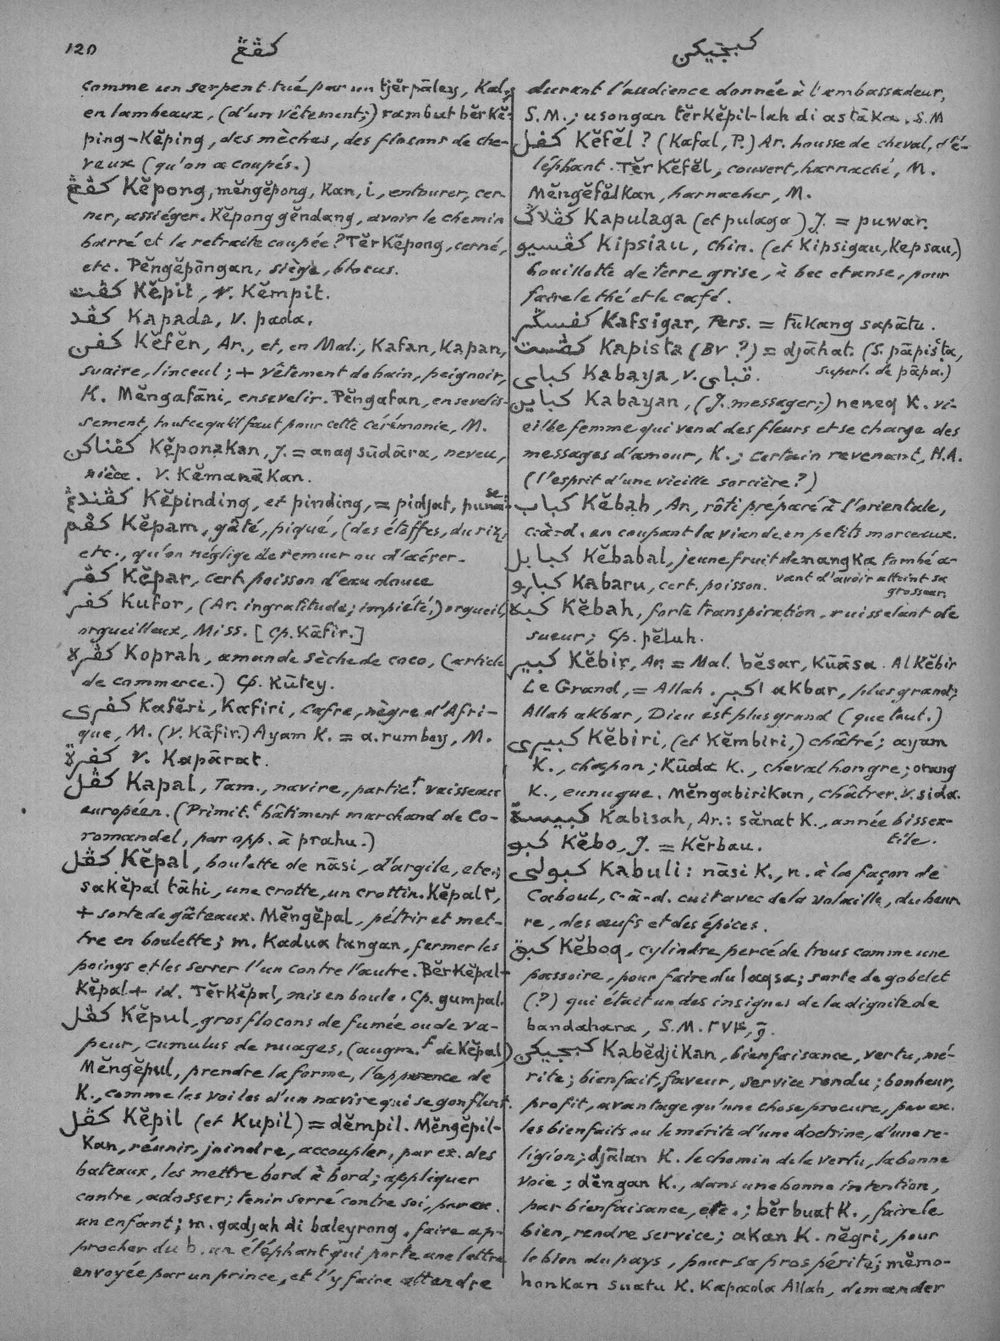 120
كڤڠ
كبجيكن
comme un serpent tué par un tjĕrpāley, Kal.
en lambeaux, (d'un vêtement;) rambut bĕrkĕ-
ping-Kĕping, des mèches, des flocons de che-
veux (qu'on a coupés.)
كڤڠ Kĕpong, mĕngĕpong, Kan, i, entourer, cer-
ner, assiéger. Kĕpong gĕndang, avoir le chemin
barré et la retraite coupée? TĕrKĕpong, cerné,
etc. Pĕngĕpōngan, siège, blocus.
كڤت Kĕpit, v. Kĕmpit.
كڤد Kapada, v. pada.
كفن Kĕfĕn, Ar., et, en Mal., Kafan, Kapan,
suaire, linceul; + vêtement de bain, peignoir,
K. Mĕngafāni, ensevelir. Pĕngafan, ensevelis-
sement, tout ce qu'il faut pour cette cérémonie, M.
كڤناكن Kĕponakan, J. = anaq sūdāra, neveu,
nièce. V. Kĕmanākan.
كڤندڠ Kĕpinding, et pinding, = pidjat, punaise.
كڤم Kĕpam, gâté, piqué, (des étoffes, du riz,
etc., qu'on néglige de remuer ou d'aérer.
كڤر Kĕpar, cert. poisson d'eau douce
كفر Kufor, (Ar. ingratitude; impiété,) orgueil,
orgueilleux, Miss. [Cp. Kāfir.]
كڤره Koprah, amande sèche de coco, (article
de commerce.) Cp. Kūtey.
كفري Kafĕri, Kafiri, Cafre, nègre d'Afri-
que, M. (V. Kāfir.) Ayam K. = a. rumbay, M.
كفرة V. Kapārat.
كڤل Kapal, Tam., navire, particᵗ. vaisseau
européen. (Primit.ᵗ bâtiment marchand de Co-
romandel, par opp. à prahu.)
كڤل Kĕpal, boulette de nāsi, d'argile, etc.;
saKĕpal tāhi, une crotte, un crottin. Kĕpal ٢,
+ sorte de gâteaux. Mĕngĕpal, pétrir et met-
tre en boulette; m. Kadua tangan, fermer les
poings et les serrer l'un contre l'autre. BĕrKĕpal-
Kĕpal + id. TĕrKĕpal, mis en boule. Cp. gumpal.
كڤل Kĕpul, gros flocons de fumée ou de va-
peur, cumulus de nuages, (augm.ᶠ de Kĕpal)
Mĕngĕpul, prendre la forme, l'apparence de
K., comme les voiles d'un navire qui se gonflent.
كڤل Kĕpil (et Kupil) = dĕmpil. Mĕngĕpil-
Kan, réunir, joindre, accoupler, par ex. des
bateaux, les mettre bord à bord; appliquer
contre, adosser; tenir serré contre soi, par ex.
un enfant; m. gadjah di baleyrong, faire ap-
procher du b. un éléphant qui porte une lettre
envoyée par un prince, et l'y faire attendre
durant l'audience donnée à l'ambassadeur,
S.M.; usongan tĕrkĕpil-lah di astāka, S.M
كفل Kĕfĕl? (Kafal, P.) Ar. housse de cheval, d'é-
léphant. TĕrKĕfĕl, couvert, harnaché, M.
MĕngĕfĕlKan, harnacher, M.
كڤلاݢ Kapulaga (et pulaga) J. = puwar.
كڤسيو Kipsiau, Chin. (et Kipsigau, Kepsau,)
bouillotte de terre grise, à bec et anse, pour
faire le thé et le café.
كفسݢر Kafsigar, Pers. = tūkang sapātu.
كڤست Kapista (BV ?) = djāhat. (S. pāpiṣṭa,
superl. de pāpa.)
كباي Kabaya, v. قباي.
كباين Kabayan, (J. messager;) neneq K. vi-
eille femme qui vend des fleurs et se charge des
messages d'amour, K.; certain revenant, H.A.
(l'esprit d'une vieille sorcière?)
كباب Kĕbab, Ar, rôti préparé à l'orientale,
c-à-d. en coupant la viande en petits morceaux.
كبابل Kĕbabal, jeune fruit de nangka tombé a-
vant d'avoir atteint sa grosseur.
كبارو Kabaru, cert. poisson.
كبه Kĕbah, forte transpiration, ruisselant de
sueur; Cp. pĕluh.
كبير Kĕbir, Ar. = Mal. bĕsar, Kūāsa. AlKĕbir
Le Grand, = Allah. اكبر akbar, plus grand;
Allah akbar, Dieu est plus grand (que tout.)
كبيري Kĕbiri, (et Kĕmbiri,) châtré; ayam
K., chapon; Kūda K., cheval hongre; orang
K., eunuque. MĕngabiriKan, châtrer. V. sida.
كبيسة Kabisah, Ar.: sănat K., année bissex-
tile.
كبو Kĕbo, J. = Kĕrbau.
كبولي Kabuli: nāsi K., n. à la façon de
Caboul, c-à-d. cuit avec de la volaille, du beur-
re, des œufs et des épices.
كبق Kĕboq, cylindre percé de trous comme une
passoire, pour faire du laqsa; sorte de gobelet
(?) qui était un des insignes de la dignité de
bandahara, S.M. ٢٧٤,
كبجيكن KabĕdjiKan, bienfaisance, vertu, mé-
rite; bienfait, faveur, service rendu; bonheur,
profit, avantage qu'une chose procure, par ex.
les bienfaits ou le mérite d'une doctrine, d'une re-
ligion; djālan K. le chemin de la vertu, la bonne
voie; dĕngan K., dans une bonne intention,
par bienfaisance, etc.; bĕrbuat K., faire le
bien, rendre service; akan K. nĕgri, pour
le bien du pays, pour sa prospérité; mĕmo-
honKan suatu K. Kapada Allah, demander